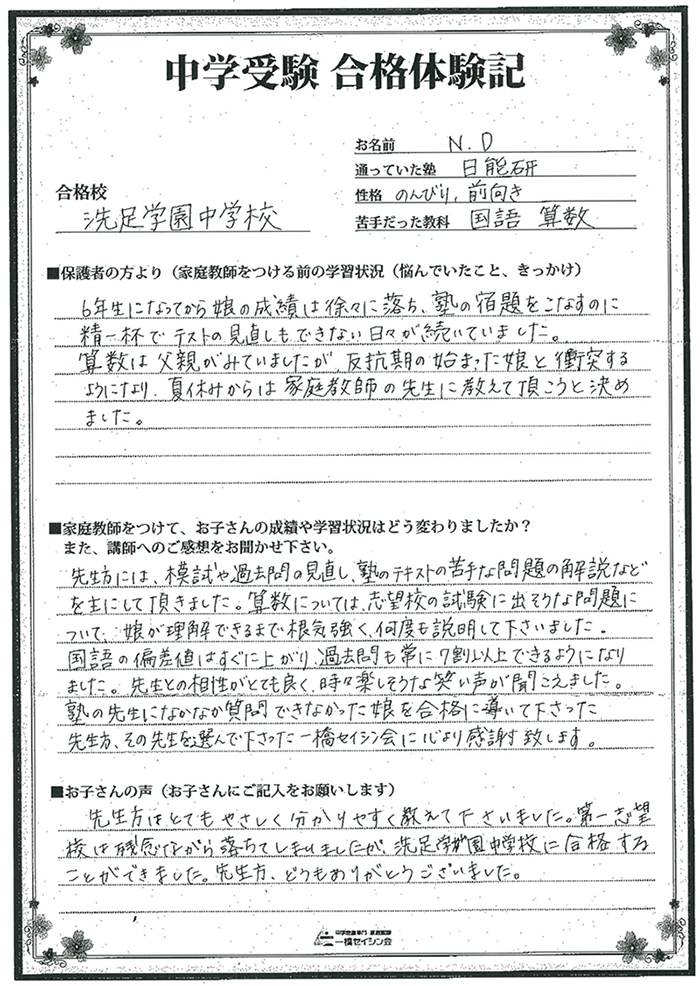 中学受験 合格体験記
お名前 N.D
通っていた塾 日能研
性格 のんびり, 前向き
苦手だった教科 国語 算数
合格校
洗足学園中学校
■保護者の方より（家庭教師をつける前の学習状況（悩んでいたこと、きっかけ）
6年生になってから娘の成績は徐々に落ち、塾の宿題をこなすのに
精一杯でテストの見直しもできない日々が続いていました。
算数は父親がみていましたが、反抗期の始まった娘と衝突する
ようになり、夏休みからは家庭教師の先生に教えて頂こうと決め
ました。
■家庭教師をつけて、お子さんの成績や学習状況はどう変わりましたか？
また、講師へのご感想をお聞かせ下さい。
先生方には、模試や過去問の見直し、塾のテキストの苦手な問題の解説など
を主にして頂きました。算数については、志望校の試験に出そうな問題に
ついて、娘が理解できるまで根気強く、何度も説明して下さいました。
国語の偏差値はすぐに上がり、過去問も常に7割以上できるようになり
ました。先生との相性がとても良く、時々楽しそうな笑い声が聞こえました。
塾の先生になかなか質問できなかった娘を合格に導いて下さった
先生方、その先生を選んで下さった一橋セイシン会に心より感謝致します。
■お子さんの声（お子さんにご記入をお願いします）
先生方はとてもやさしく分かりやすく教えて下さいました。第一志望
校は残念ながら落ちてしまいましたが、洗足学園中学校に合格する
ことができました。先生方、どうもありがとうございました。
中学受験専門 家庭教師
一橋セイシン会